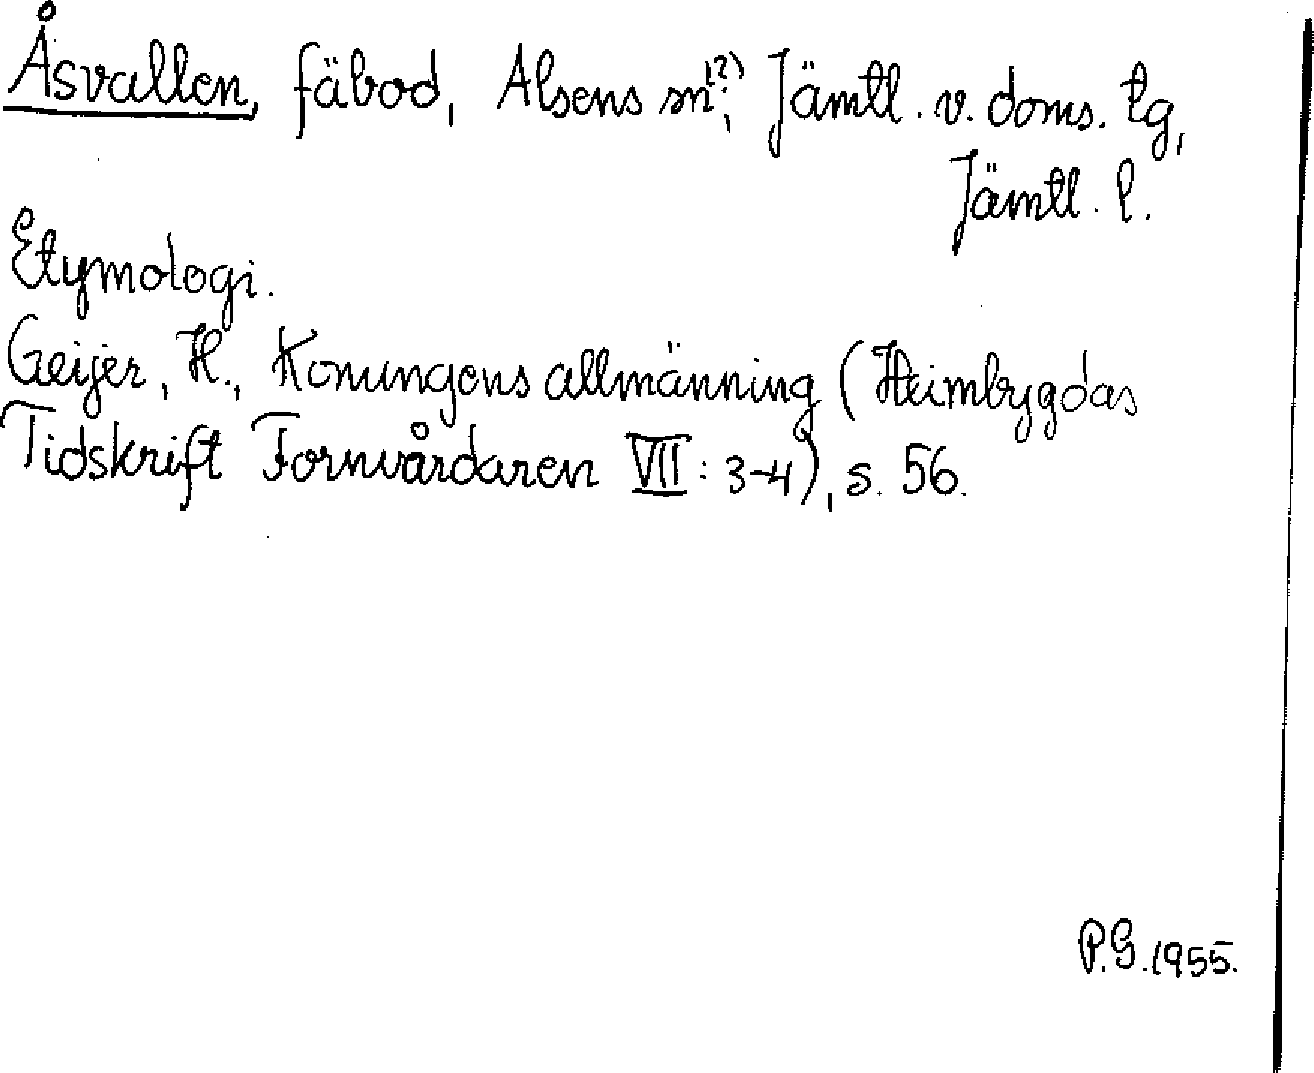 Åsvallen, fäbod, Alsens sn(?), Jämtl. v. doms. tg,
Jämtl. l.
Etymologi.
Geijer, H., Konungens allmänning (Heimbygdas
Tidskrift Fornvårdaren VII: 3-4), s. 56.
P.G. 1955.